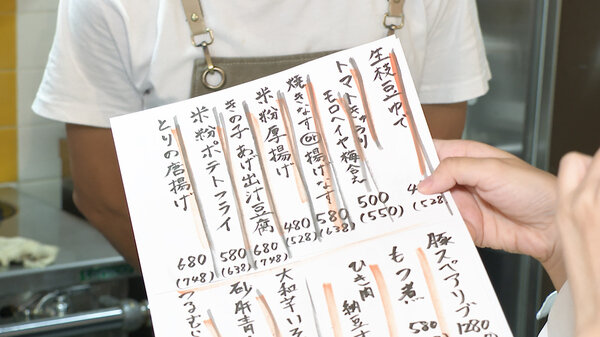 生枝豆ゆで
(528
トマトきゅうり
モロヘイヤ梅合え
500
(550)
焼きなすor揚げなす
580
(638)
米粉厚揚げ
480
(528)
きの子あげ出汁豆腐
680
(748)
米粉ポテトフライ
580
(638)
とりの唐揚げ
680
(748)
豚スペアリブ
1280
もつ煮
580
ひき肉
納豆
大和芋いそ
砂肝青
つるむら